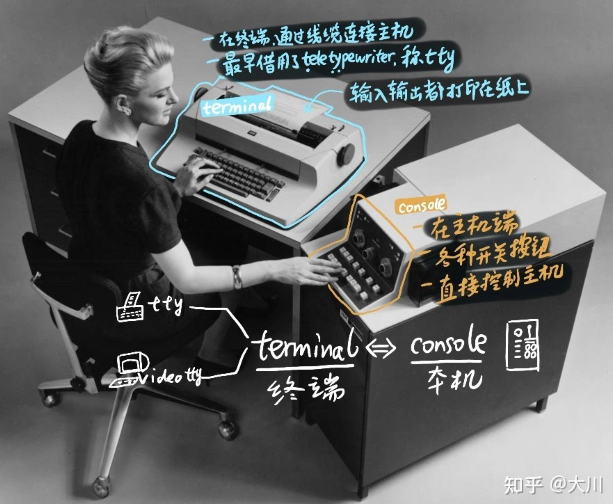 - 在终端，通过线缆连接主机
- 最早借用了teletypewriter，称tty
terminal
输入输出都打印在纸上
console
- 在主机端
- 各种开关按钮
- 直接控制主机
tty
video tty
terminal ⇔ console
终端 本机
知乎 @大川